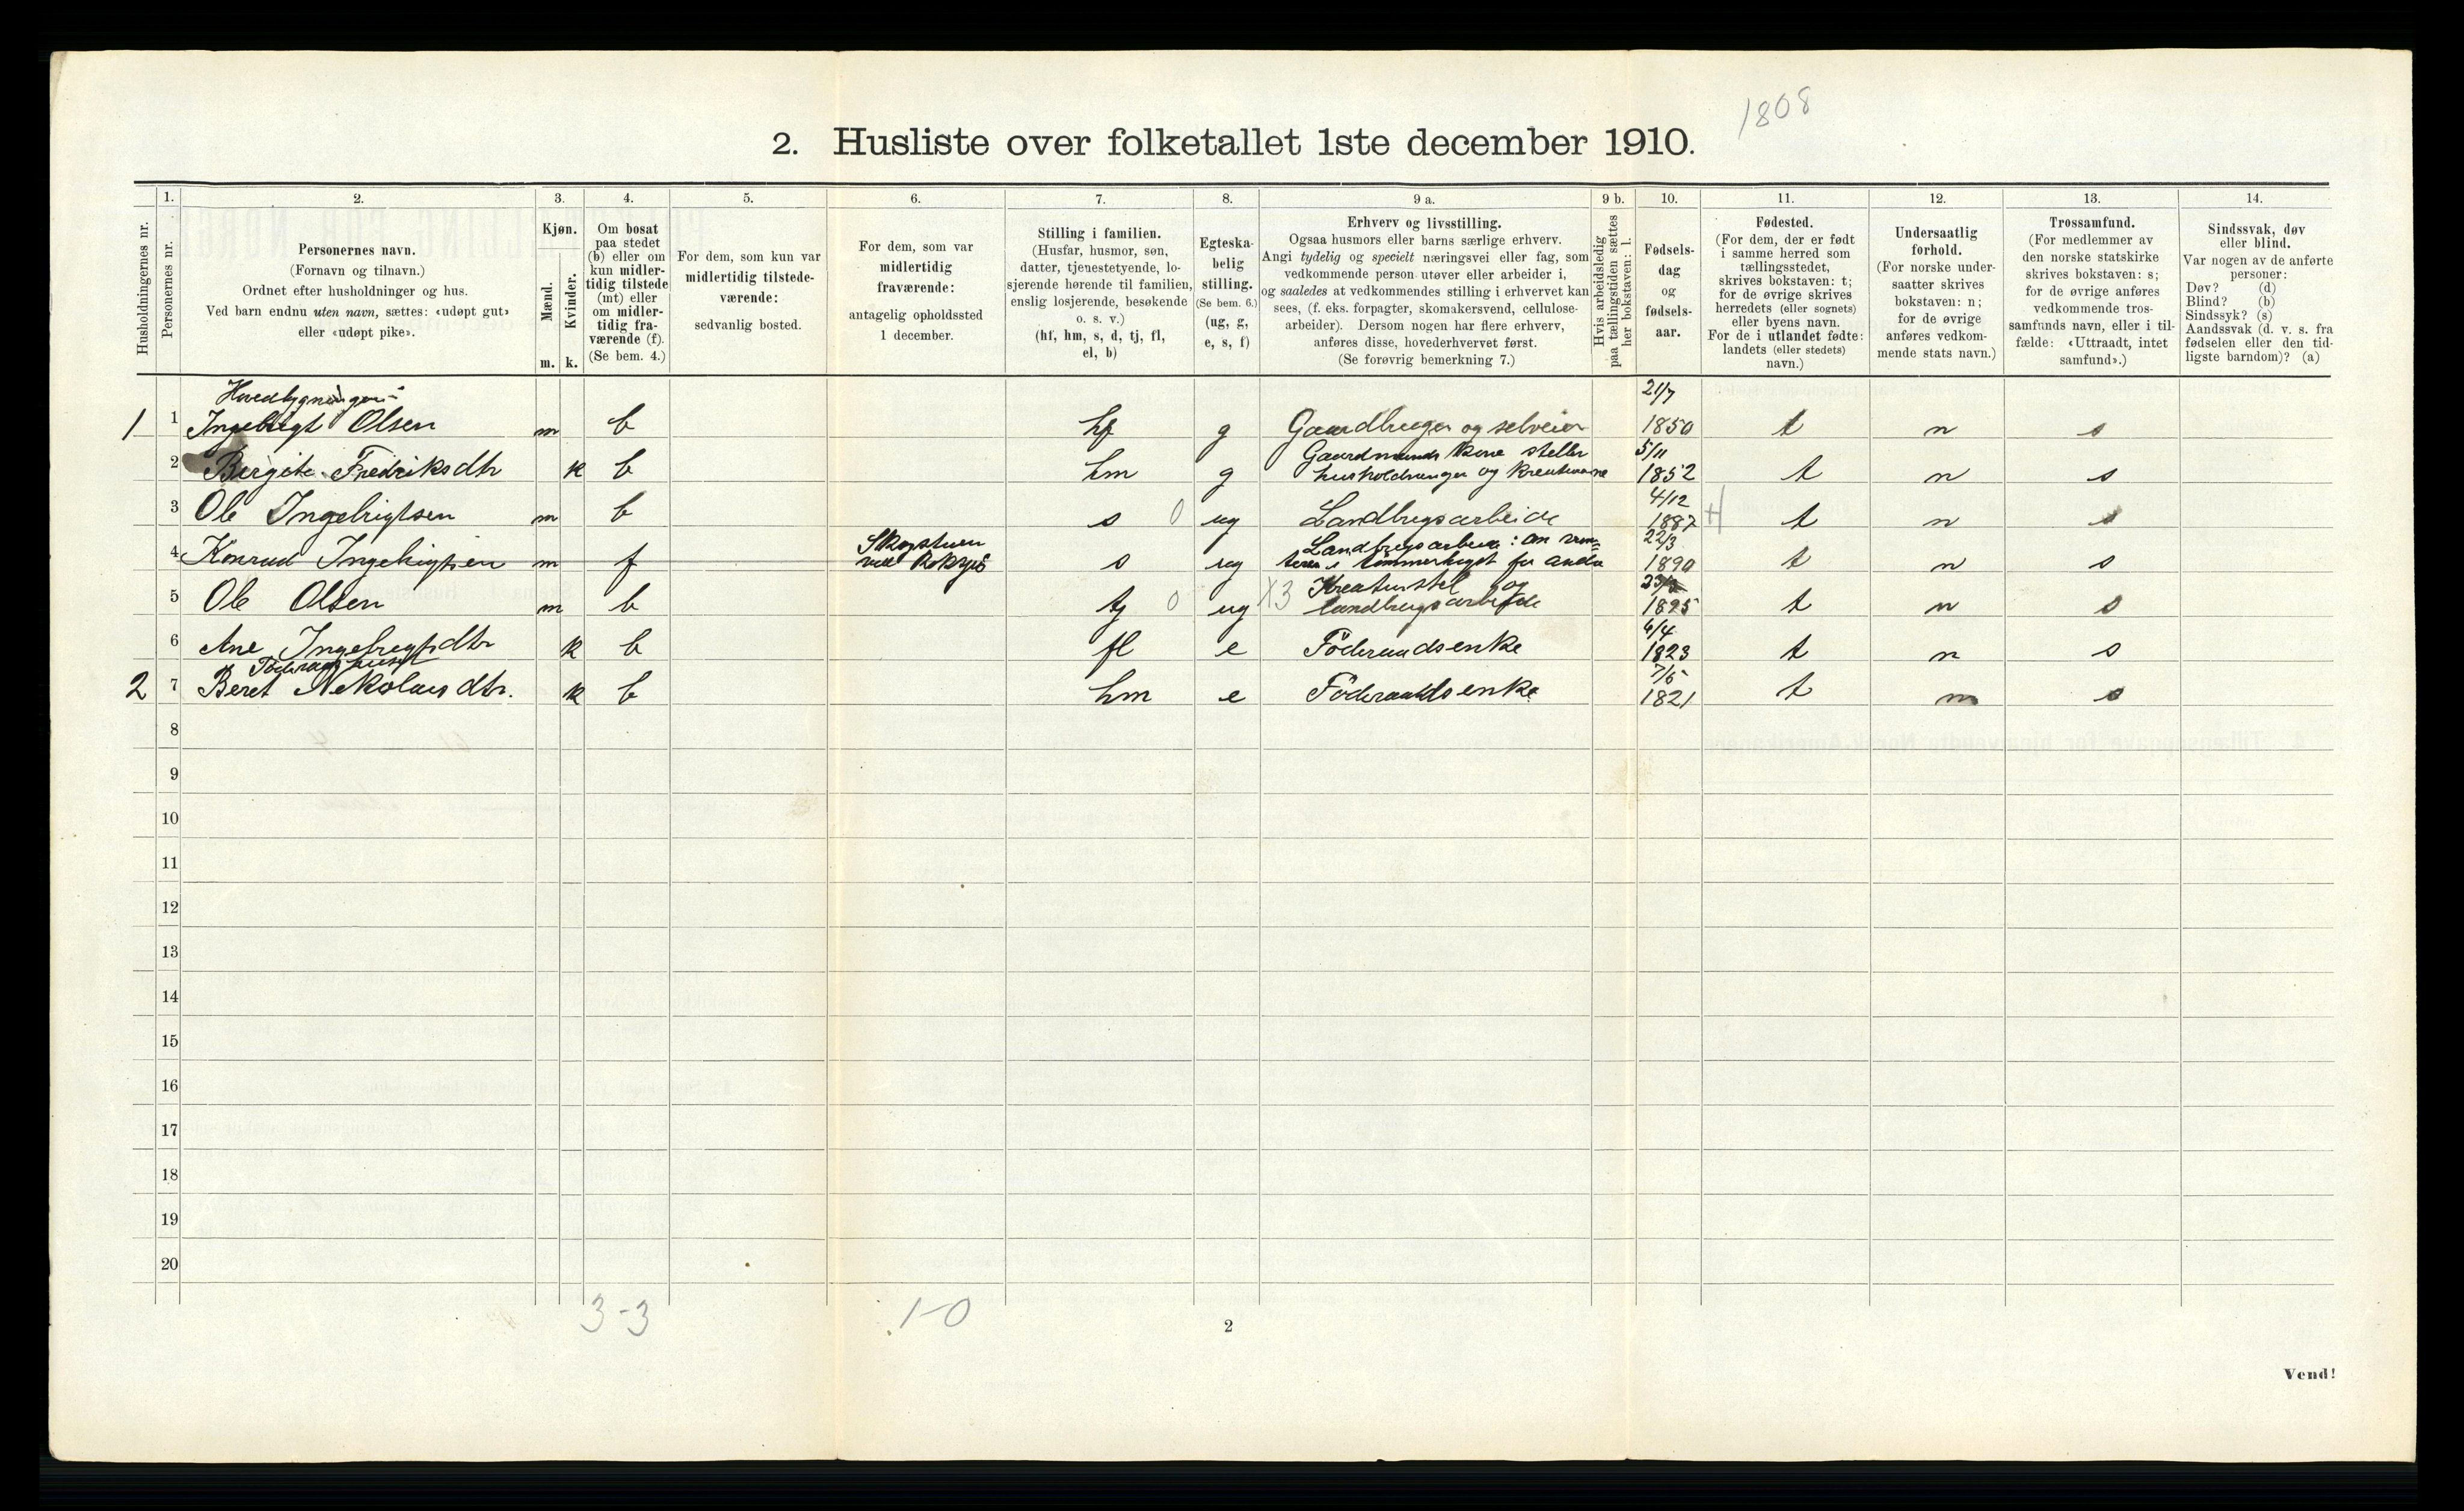 1808
2. Husliste over folketallet 1ste december 1910.
Husholdningernes nr.
1.
Personernes nr.
2.
Personernes navn.
(Fornavn og tilnavn.)
Ordnet efter husholdninger og hus.
Ved barn endnu uten navn, sættes: «udøpt gut»
eller «udøpt pike».
3.
Kjøn.
Mænd.
Kvinder.
m. k.
4.
Om bosat
paa stedet
(b) eller om
kun midler-
tidig tilstede
(mt) eller
om midler-
tidig fra-
værende (f).
(Se bem. 4.)
5.
For dem, som kun var
midlertidig tilstede-
værende:
sedvanlig bosted.
6.
For dem, som var
midlertidig
fraværende:
antagelig opholdssted
1 december.
7.
Stilling i familien.
(Husfar, husmor, søn,
datter, tjenestetyende, lo-
sjerende hørende til familien,
enslig losjerende, besøkende
o. s. v.)
(hf, hm, s, d, tj, fl,
el, b)
8.
Egteska-
belig
stilling.
(Se bem. 6.)
(ug, g,
e, s, f)
9 a.
Erhverv og livsstilling.
Ogsaa husmors eller barns særlige erhverv.
Angi tydelig og specielt næringsvei eller fag, som
vedkommende person utøver eller arbeider i,
og saaledes at vedkommendes stilling i erhvervet kan
sees, (f. eks. forpagter, skomakersvend, cellulose-
arbeider). Dersom nogen har flere erhverv,
anføres disse, hovederhvervet først.
(Se forøvrig bemerkning 7.)
9 b.
Hvis arbeidsledig
paa tællingstiden sættes
her bokstaven: l.
10.
Fødsels-
dag
og
fødsels-
aar.
11.
Fødested.
(For dem, der er født
i samme herred som
tællingsstedet,
skrives bokstaven: t;
for de øvrige skrives
herredets (eller sognets)
eller byens navn.
For de i utlandet fødte:
landets (eller stedets)
navn.)
12.
Undersaatlig
forhold.
(For norske under-
saatter skrives
bokstaven: n;
for de øvrige
anføres vedkom-
mende stats navn.)
13.
Trossamfund.
(For medlemmer av
den norske statskirke
skrives bokstaven: s;
for de øvrige anføres
vedkommende tros-
samfunds navn, eller i til-
fælde: «Uttraadt, intet
samfund».)
14.
Sindssvak, døv
eller blind.
Var nogen av de anførte
personer:
Døv? (d)
Blind? (b)
Sindssyk? (s)
Aandssvak (d. v. s. fra
fødselen eller den tid-
ligste barndom)? (a)
Hovedbygningen
21/7
1 1 Ingebrigt Olsen m b hf g Gaardbruger og selveier 1850 t n s
Gaardmands Kone steller 5/11
2 Bergite Fredriksdtr k b hm g husholdningen og Kreaturene 1852 t n s
4/12
3 Ole Ingebrigtsen m b s 0 ug Landbrugsarbeide 1887 t n s
Skogstuen Landbrugsarbeide: 22/3
4 Konrad Ingebrigtsen m f ved s ug tømmerhugst for andre 1890 t n s
Kreaturstel og
5 Ole Olsen m b tj 0 ug X3 landbrugsarbeide 1895 t n s
4/4
6 Ane Ingebrigtsdtr k b fl e Föderaadsenke 1823 t n s
Föderaadshuset 7/5
2 7 Beret Nekolausdtr. k b hm e Föderaadsenke 1821 t n s
8
9
10
11
12
13
14
15
16
17
18
19
20
3-3 1-0
2
Vend!